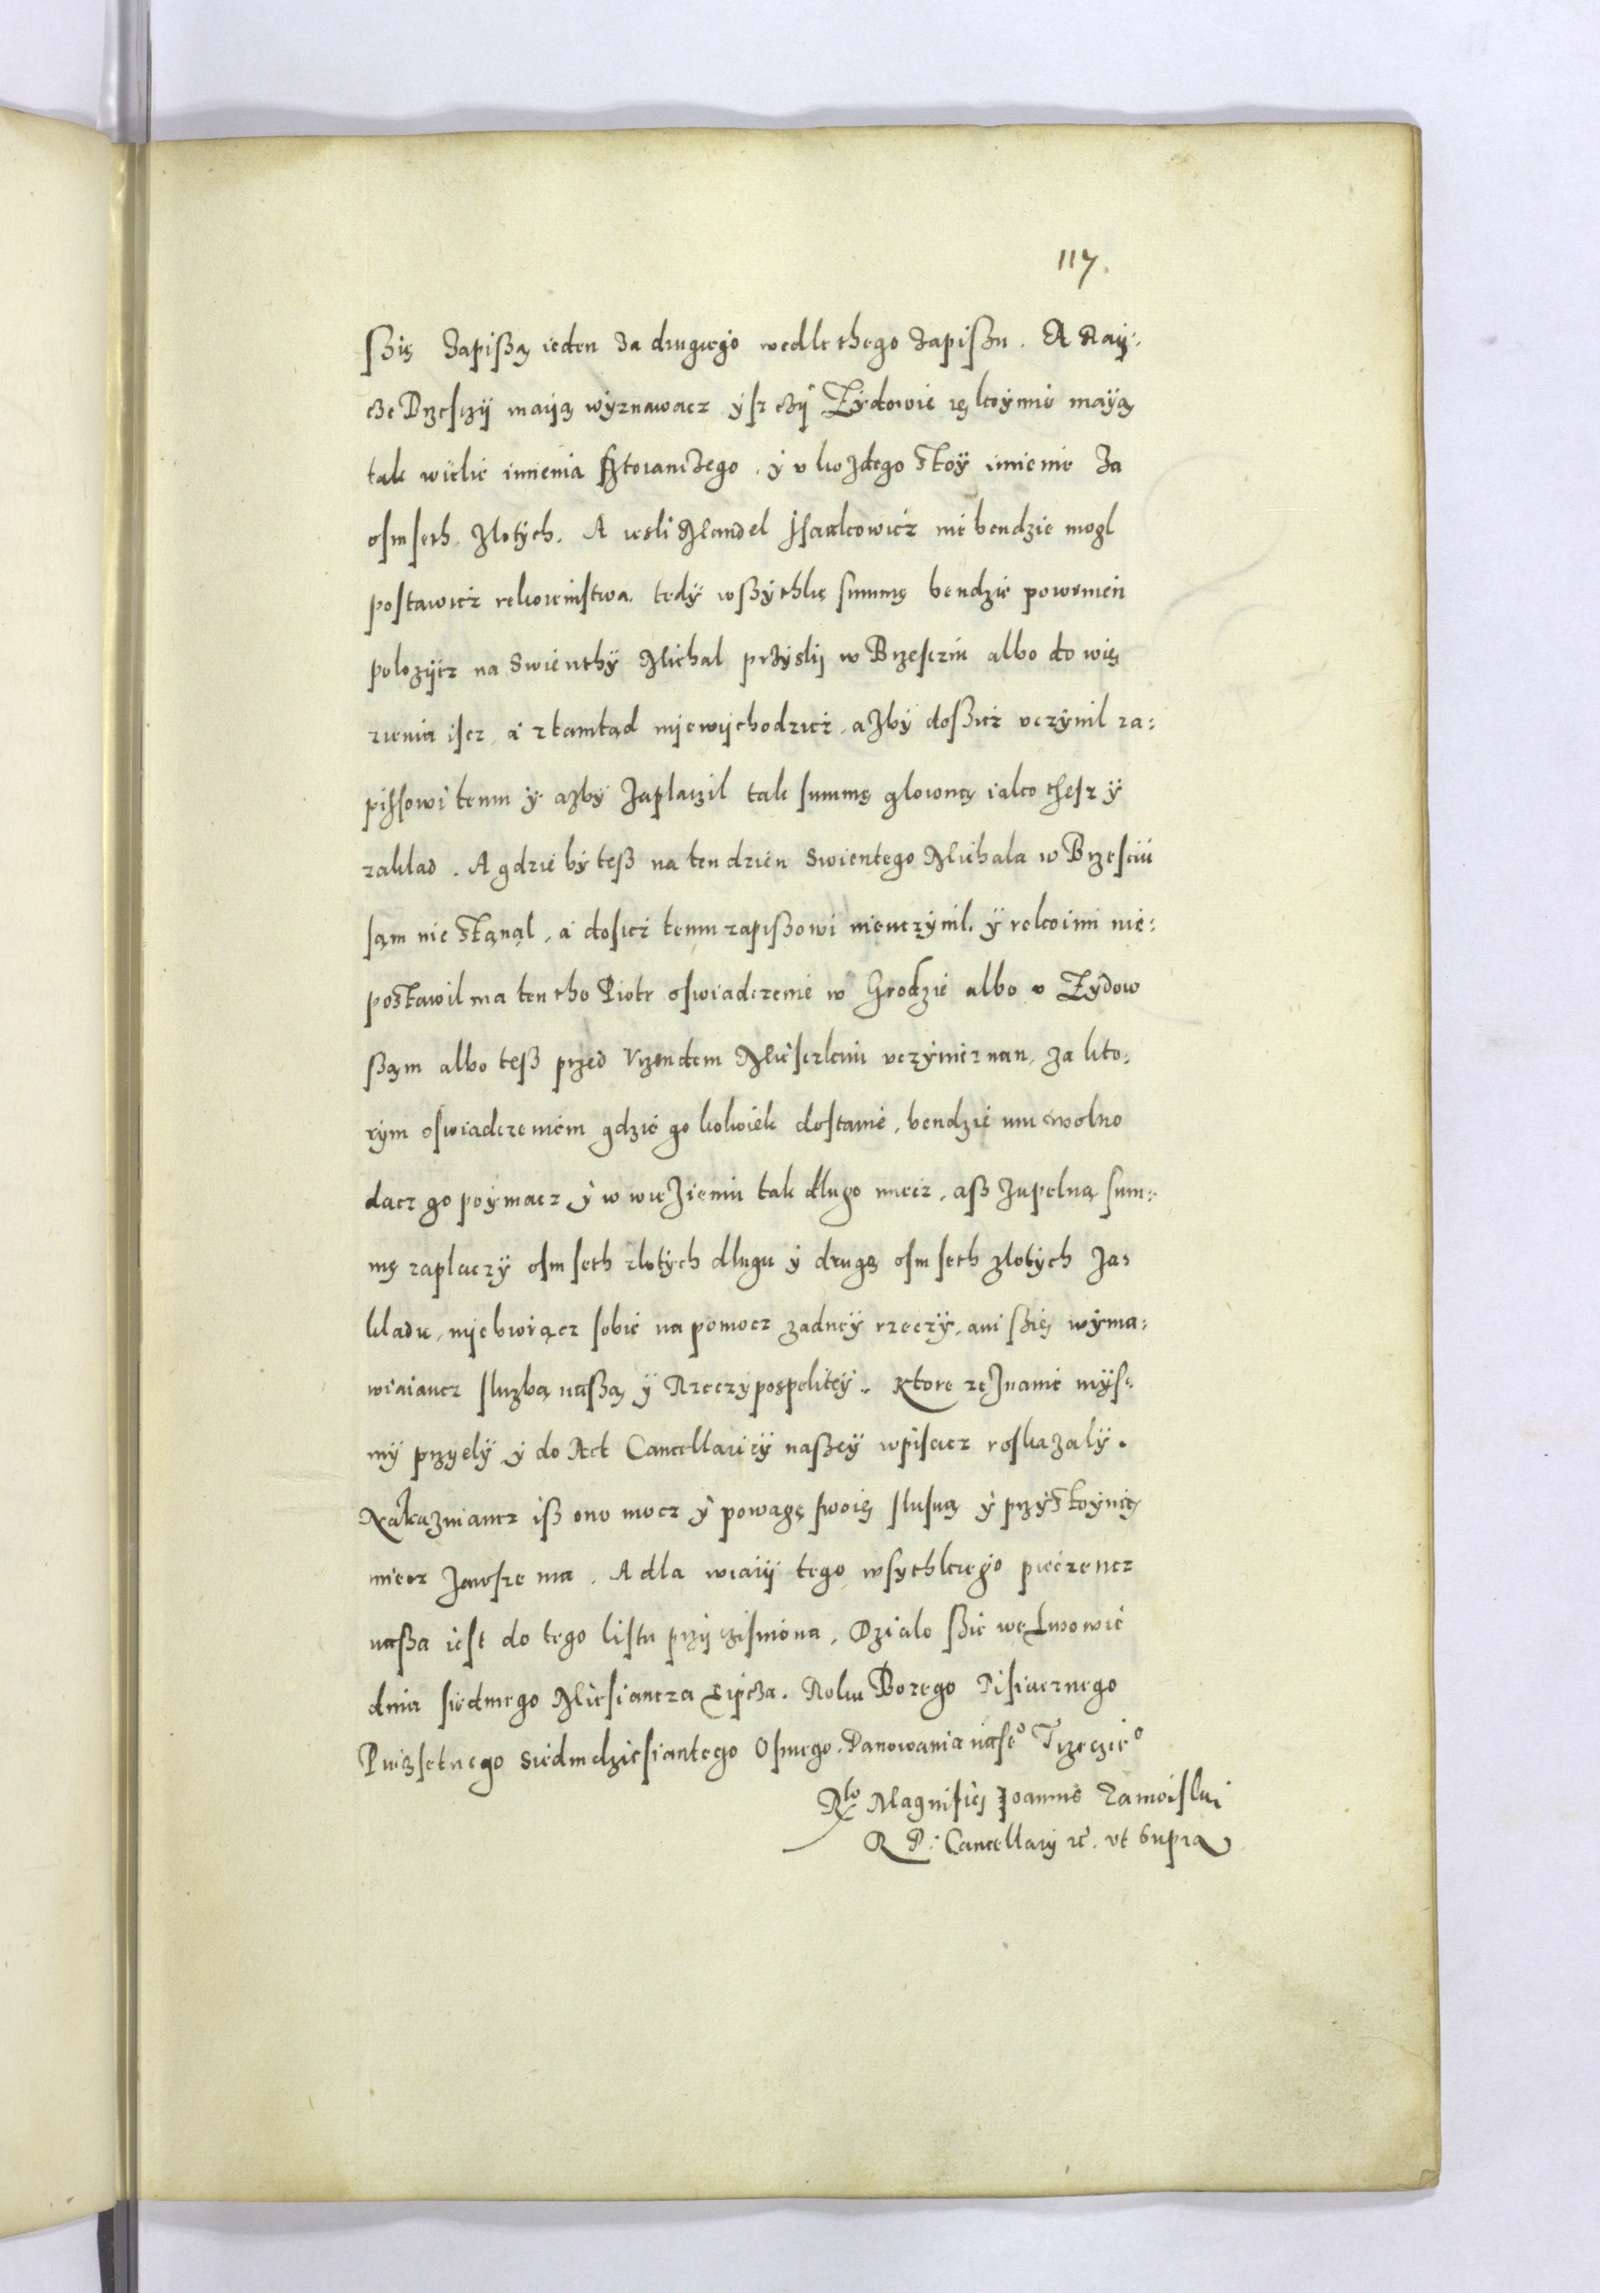 117.
szię zapiszą ieden za drugiego wedle thego zapiszu. A Raÿ:
cze Brzesczÿ maiją wyznawacz ysz czÿ Zÿdowie rękoymie maÿą
tak wiele imienia sztoianczego. ÿ v kozdego stoÿ imienie za
osm seth zlotÿch. A iesli Mandel Jsaakowicz nie bendzie mogl
postawicz rekoiemstwa. tedÿ wszÿthkę summę bendzie powinien
polozÿcz na Swienthÿ Michal przÿslij w Brzesciu albo do wię
zienia iscz, a ztamtąd niewÿchodzicz, azbÿ doszicz vczÿnil za:
pissowi temu ÿ azbÿ zaplaczil tak summę glowną iako thesz ÿ
zaklad. A gdzie bÿ tesz na ten dzien Swientego Michala w Brzesciu
sąm nie stąnąl, a dosicz temu zapiszowi nieuczÿnil. ÿ rekoimi nie:
postawil ma ten tho Piotr oswiadczenie w Grodzie albo v Zÿdow
sząm albo tesz przed Vrzendem Miesczkim vczÿnicz nan, za kto:
rÿm oswiadczeniem gdzie go kolwiek dostanie, bendzie mu wolno
dacz go poÿmacz ÿ w wiezieniu tak dlugo miecz, asz zupelną sum:
mę zaplaczÿ osm seth zlotÿch dlugu ÿ drugą osm seth zlotÿch za:
kladu, niebiorącz sobie na pomocz zadneÿ rzeczÿ, ani szię wÿma:
wiaiancz sluzbą naszą ÿ Rzeczÿpospoliteÿ. Ktore zeznanie mÿs:
mÿ przÿelÿ ÿ do Act Cancellarieÿ naszeÿ wpisacz roskazalÿ.
isz ono mocz ÿ powagę swoię slusną ÿ przÿstoÿnię
miecz zawsze ma. A dla wiarÿ tego wsÿthkiego pieczencz
nasza iest do tego listu przÿczisniona. Dzialo szie we Lwowie
dnia siedmego Miesiancza Lipcza. Roku Bozego Tisiacznego
Piączsetnego Siedmdziesiantego Osmego. Panowania nasẽ° Trzeczie°
R<sup>tio</sup> Magnifici Joannis Zamoiski
R P: Cancellarÿ etc. vt Supra